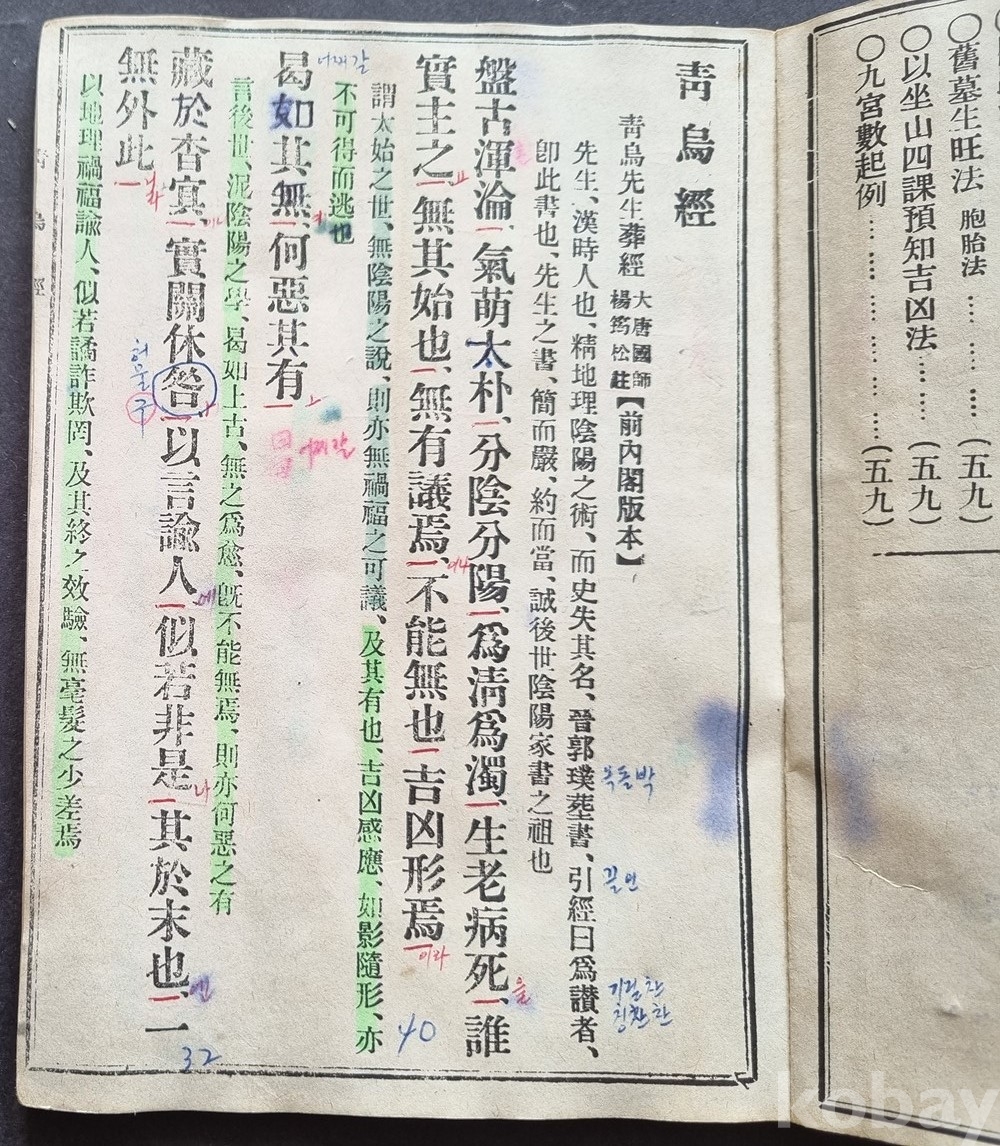 〇舊墓生旺法 胞胎法 ………… (五九)
〇以坐山四課預知吉凶法 ………… (五九)
〇九宮數起例 ………… (五九)
靑烏經
靑烏先生葬經 大唐國師 楊筠松註【前內閣版本】
先生、漢時人也、精地理陰陽之術、而史失其名、晉郭璞葬書、引經曰爲讚者、
옥돌박
끌인
기릴찬
칭찬찬
卽此書也、先生之書、簡而嚴、約而當、誠後世陰陽家書之祖也
盤古渾淪、氣萌太朴、分陰分陽、爲淸爲濁、生老病死、誰
을
實主之、無其始也、無有議焉、不能無也、吉凶形焉
이라
40
謂太始之世、無陰陽之說、則亦無禍福之可議、及其有也、吉凶感應、如影隨形、亦
不可得而逃也
어찌갈
曷如其無、何惡其有
어찌갈
言後世、泥陰陽之學、曷如上古、無之爲愈、旣不能無焉、則亦何惡之有
藏於杳冥、實關休咎、以言諭人、似若非是、其於末也、一
에
나
엔
32
허물
구
無外此
以地理禍福諭人、似若譎詐欺罔、及其終之效驗、無毫髮之少差焉
靑烏經
kobay